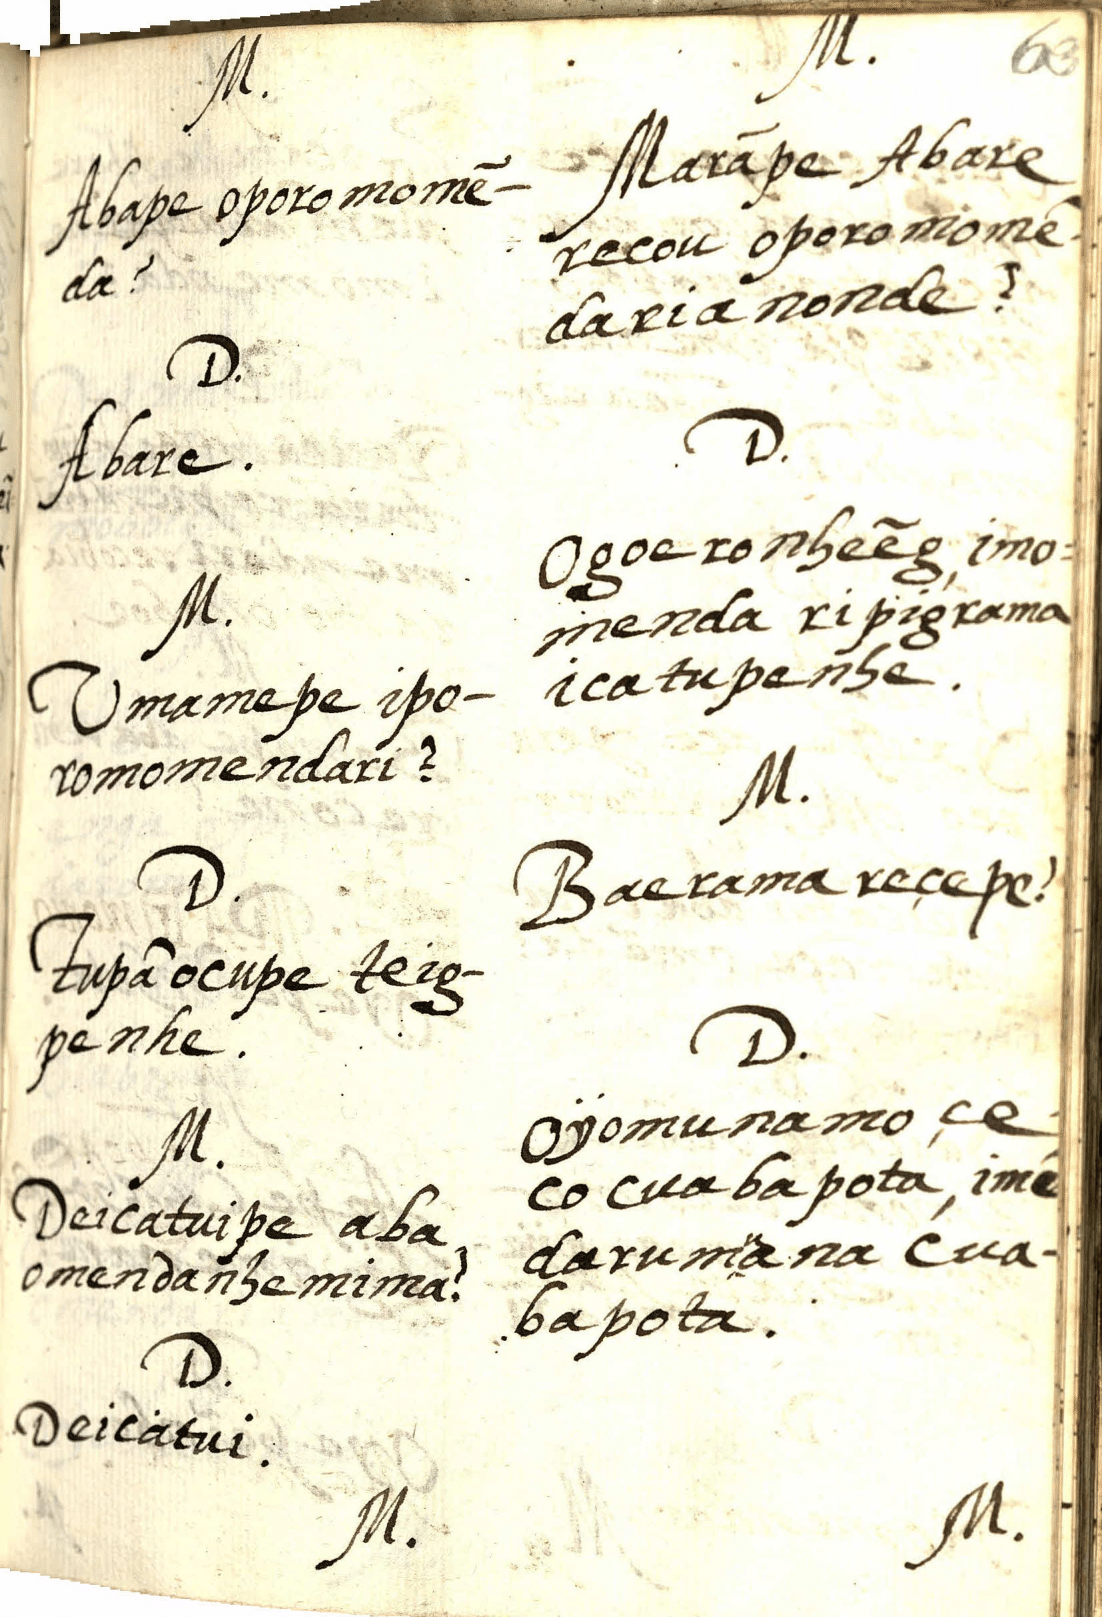 M.
Abape oporomomẽ-
da?
D.
Abare.
M.
Umamepe ipo-
romomendari?
D.
Tupã ocupe teig-
penhe.
M.
Deicatuipe aba,
omendanhemima?
D.
Deicatui.
M.
M.
Marãpe Abare
recou oporomomẽ-
darianonde?
D.
Ogoeronheẽg, imo-
menda ripigrama
icatupenhe.
M.
Baerama reçepe?
D.
Oÿomunamo çe-
co cuabapota, imẽ
darumana cua-
bapota.
M.